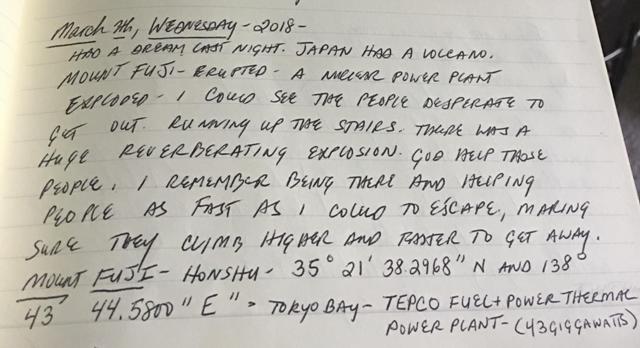 March 7th, WEDNESDAY - 2018 -
HAD A DREAM LAST NIGHT. JAPAN HAD A VOLCANO.
MOUNT FUJI - ERUPTED - A NUCLEAR POWER PLANT
EXPLODED - I COULD SEE THE PEOPLE DESPERATE TO
GET OUT. RUNNING UP THE STAIRS. THERE WAS A
HUGE REVERBERATING EXPLOSION. GOD HELP THOSE
PEOPLE. I REMEMBER BEING THERE AND HELPING
PEOPLE AS FAST AS I COULD TO ESCAPE, MAKING
SURE THEY CLIMB HIGHER AND FASTER TO GET AWAY.
MOUNT FUJI - HONSHU - 35° 21' 38.2968" N AND 138°
43' 44.5800" E" - TOKYO BAY - TEPCO FUEL + POWER THERMAL
POWER PLANT - (43 GIGGAWATTS)